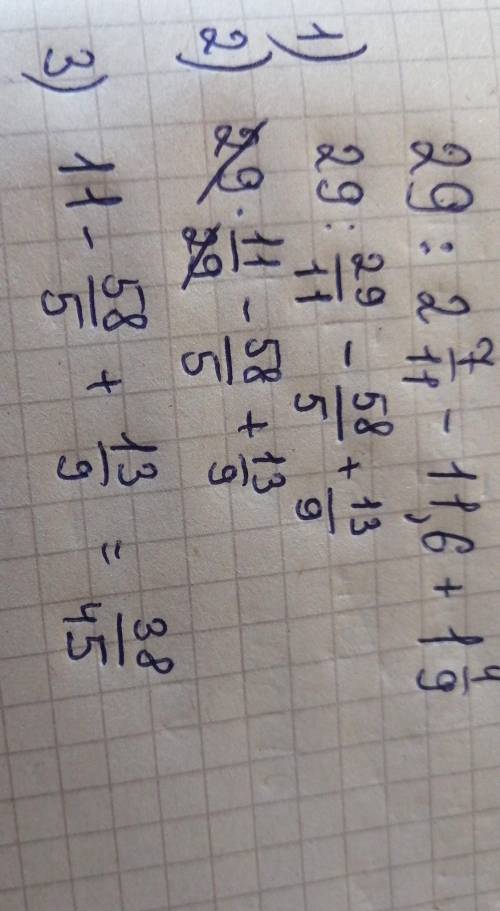 29 : 2 7/11 - 11,6 + 1 4/9
1) 29 : 29/11 - 58/5 + 13/9
2) 29 · 11/29 - 58/5 + 13/9
3) 11 - 58/5 + 13/9 = 38/45